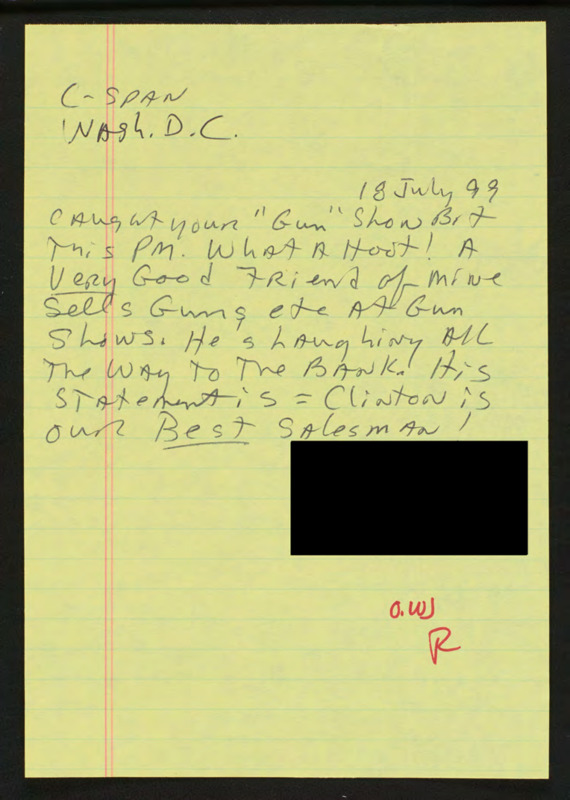 C-SPAN
WASh. D.C.
18 July 99
CAught your "Gun" Show Bit
This PM. WhAt A Hoot! A
Very Good Friend of mine
Sells Guns etc At Gun
Shows. He's LAughing All
The WAy To The BANK. His
STAtement is = Clinton is
our Best SAlesmAn!
O.W
R